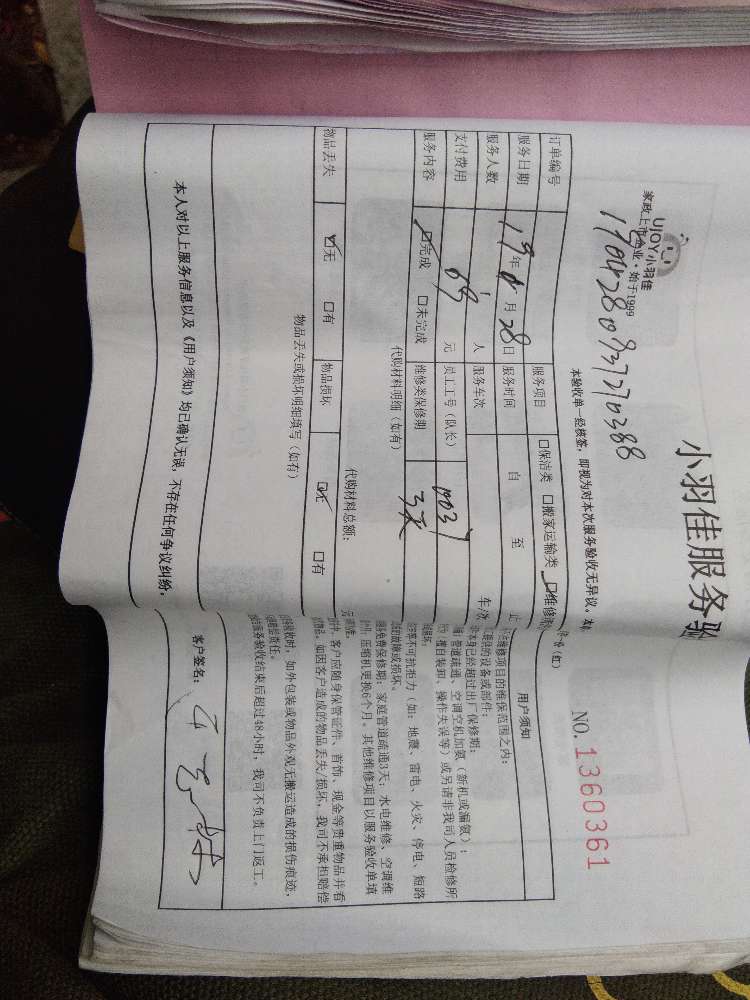 UJOY小羽佳
家政上市企业·始于1999
小羽佳服务验
NO.1360361
本验收单一经核签，即视为对本次服务验收无异议。
订单编号
服务项目 口保洁类 口搬家运输类 口维修
用户须知
服务日期 19年 月28日 服务时间 自 至 止
服务人数 人 服务车次 车次
支付费用 元 员工工号（队长）
服务内容 口完成 口未完成 维修类保修期 3天
代购材料明细（如有）
代购材料总额： 元
物品丢失 口无 口有 物品损坏 口无 口有
物品丢失或损坏明细填写（如有）
维修项目的维保范围之内：
的设备或部件；
已经超过出厂保修期；
管道疏通、空调空机加氨（新机或漏氨）；
擅自装卸、操作失误等）或另请非我司人员检修所
等不可抗拒力（如：地震、雷电、火灾、停电、短路
故障或损坏。
免费保修期：家庭管道疏通3天；水电维修、空调维
压缩机更换6个月。其他维修项目以服务验收单填
客户应随身保管证件、首饰、现金等贵重物品并看
如因客户造成的物品丢失/损坏，我司不承担赔偿
验收时，如外包装或物品外观无搬运造成的损伤痕迹，
责任。
服务验收结束后超过48小时，我司不负责上门返工。
本人对以上服务信息以及《用户须知》均已确认无误，不存在任何争议纠纷。
客户签名：